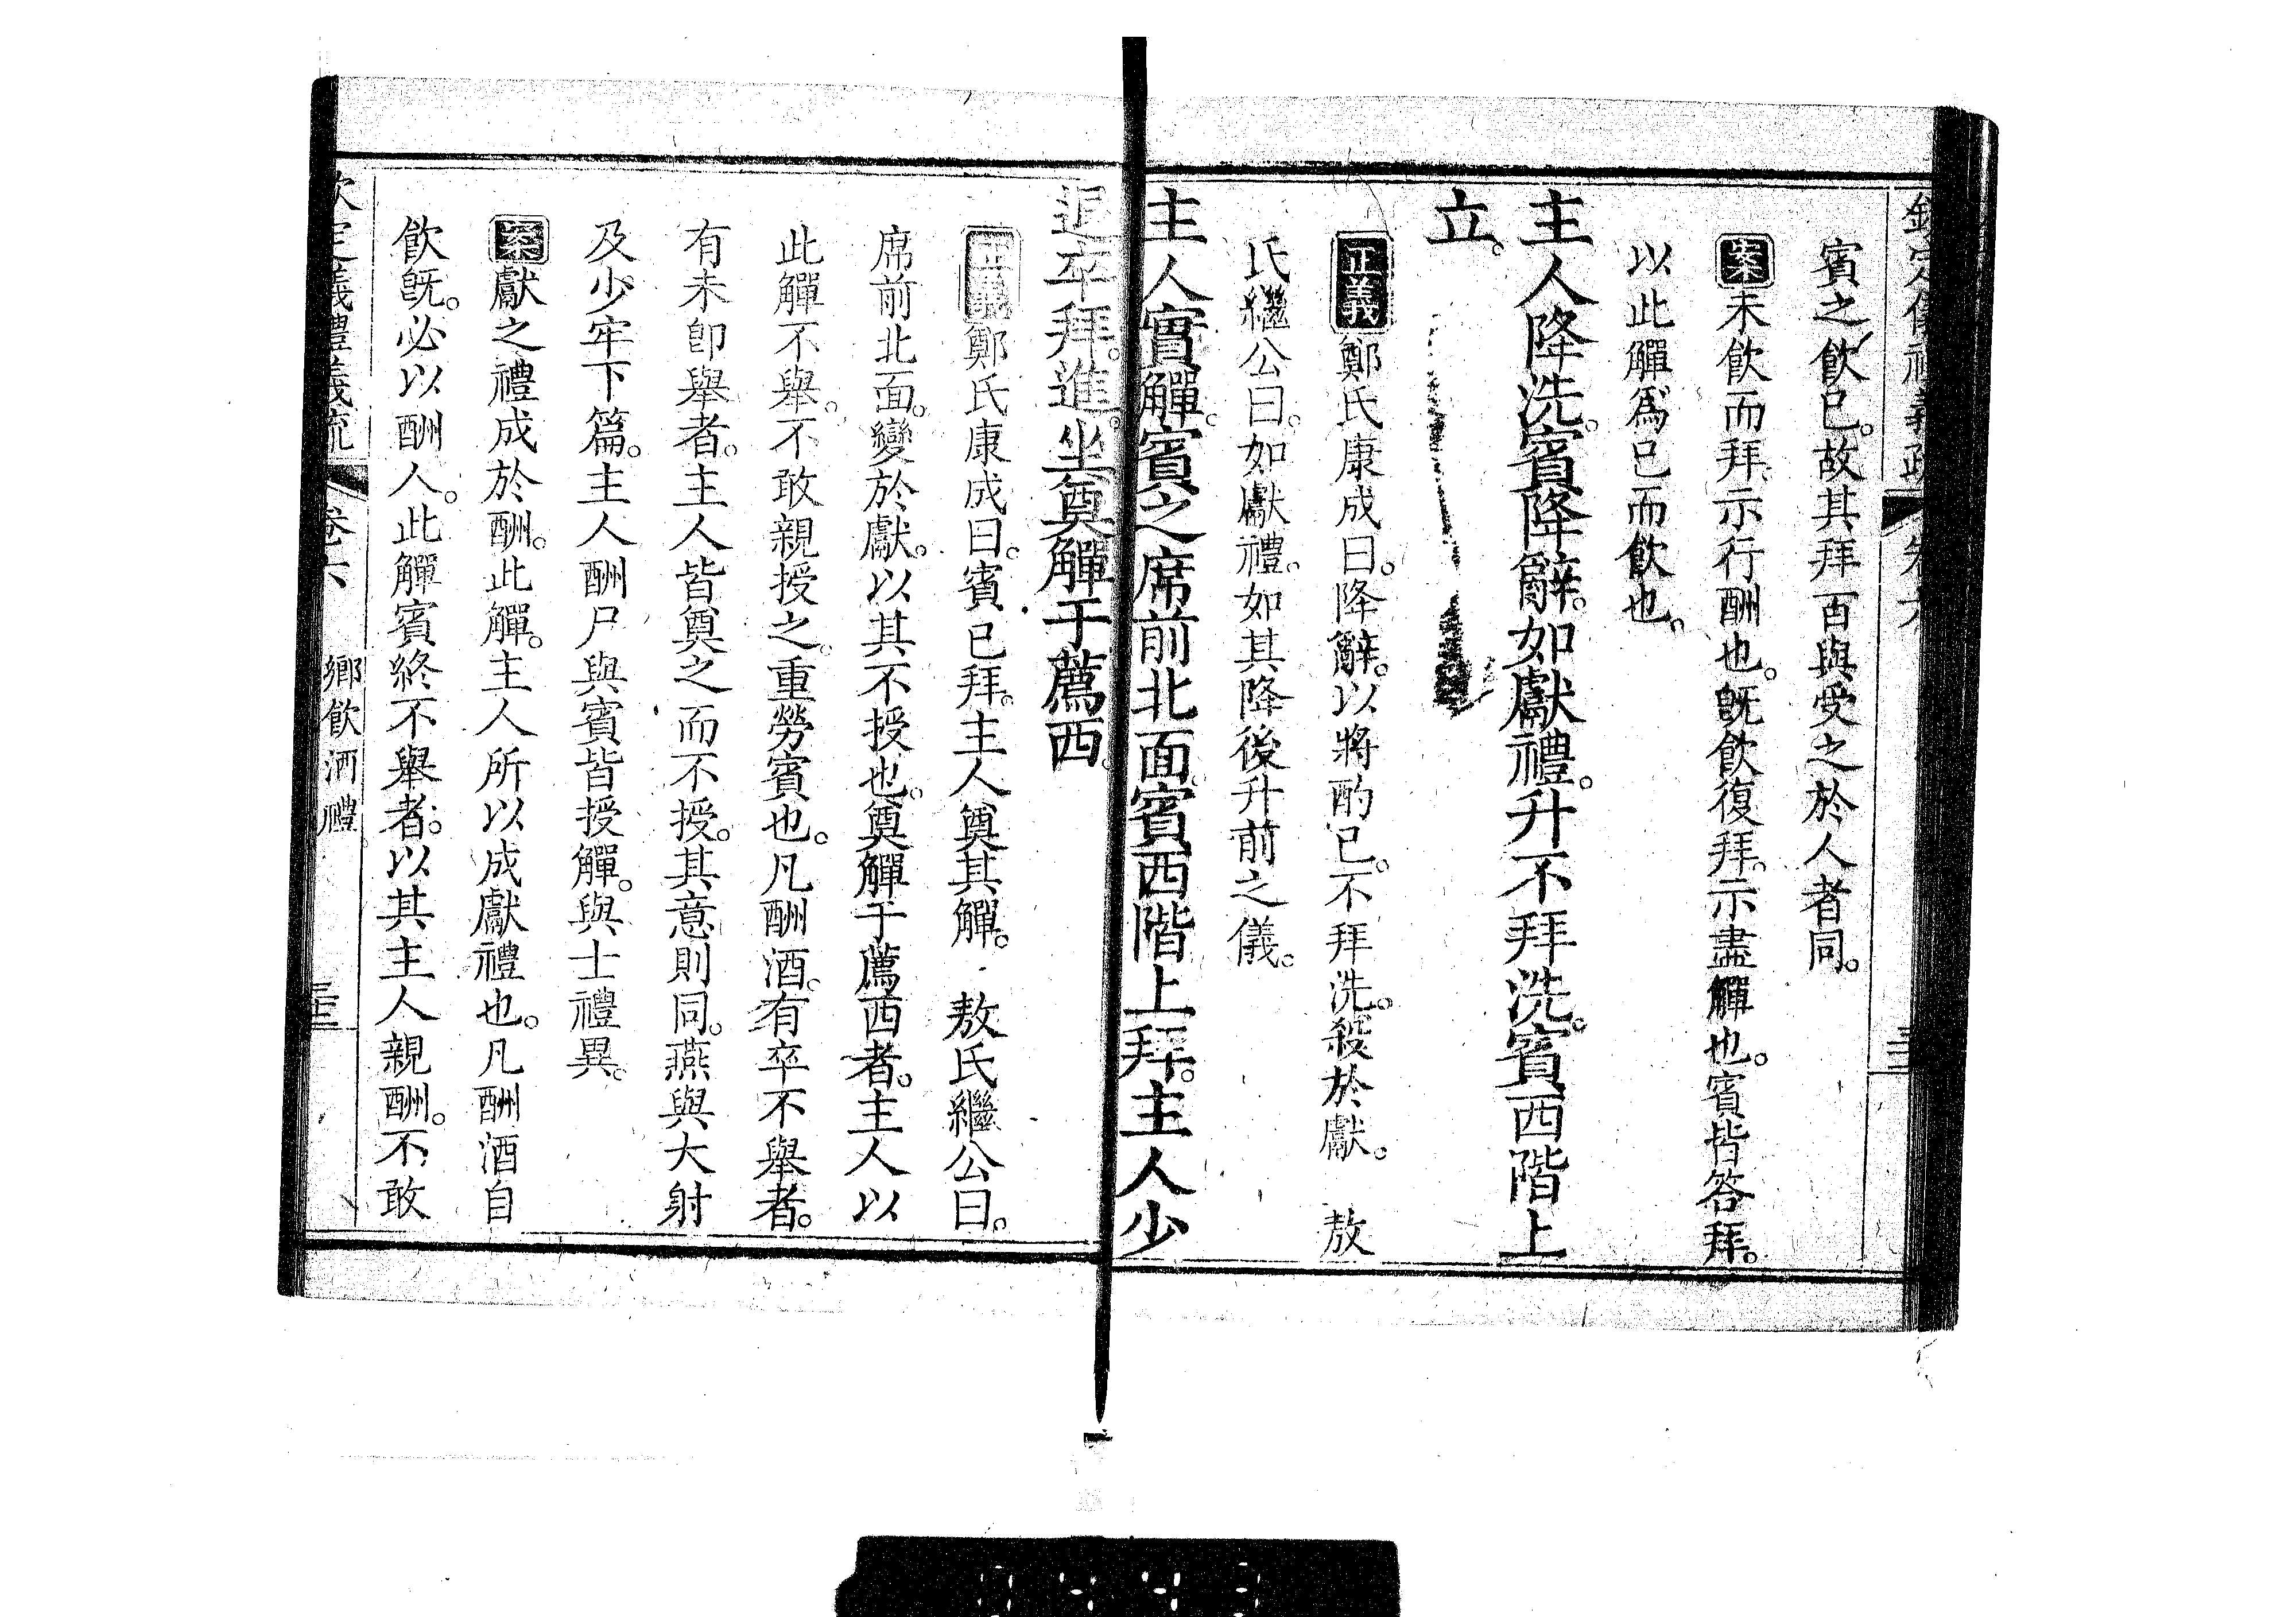 賓之飲已。故其拜百與受之於人者同。
案未飲而拜。示行酬也。旣飲復拜。示盡觶也。賓皆答拜。
以此觶爲已而飲也。
主人降洗。賓降辭。如獻禮。升不拜洗。賓西階上
立。
正義鄭氏康成曰。降辭。以將酌已。不拜洗。殺於獻。 敖
氏繼公曰。如獻禮。如其降後升前之儀。
主人實觶。賓之席前北面。賓西階上拜。主人少
退。卒拜。進。坐奠觶于薦西。
正義鄭氏康成曰。賓已拜。主人奠其觶。 敖氏繼公曰。
席前北面。變於獻。以其不授也。奠觶于薦西者。主人以
此觶不舉。不敢親授之。重勞賓也。凡酬酒。有卒不舉者。
有未卽舉者。主人皆奠之而不授。其意則同。燕與大射
及少牢下篇。主人酬尸與賓皆授觶。與士禮異。
案獻之禮成於酬。此觶。主人所以成獻禮也。凡酬酒自
飲旣。必以酬人。此觶賓終不舉者。以其主人親酬。不敢
欽定儀禮義疏 卷六 鄉飲酒禮